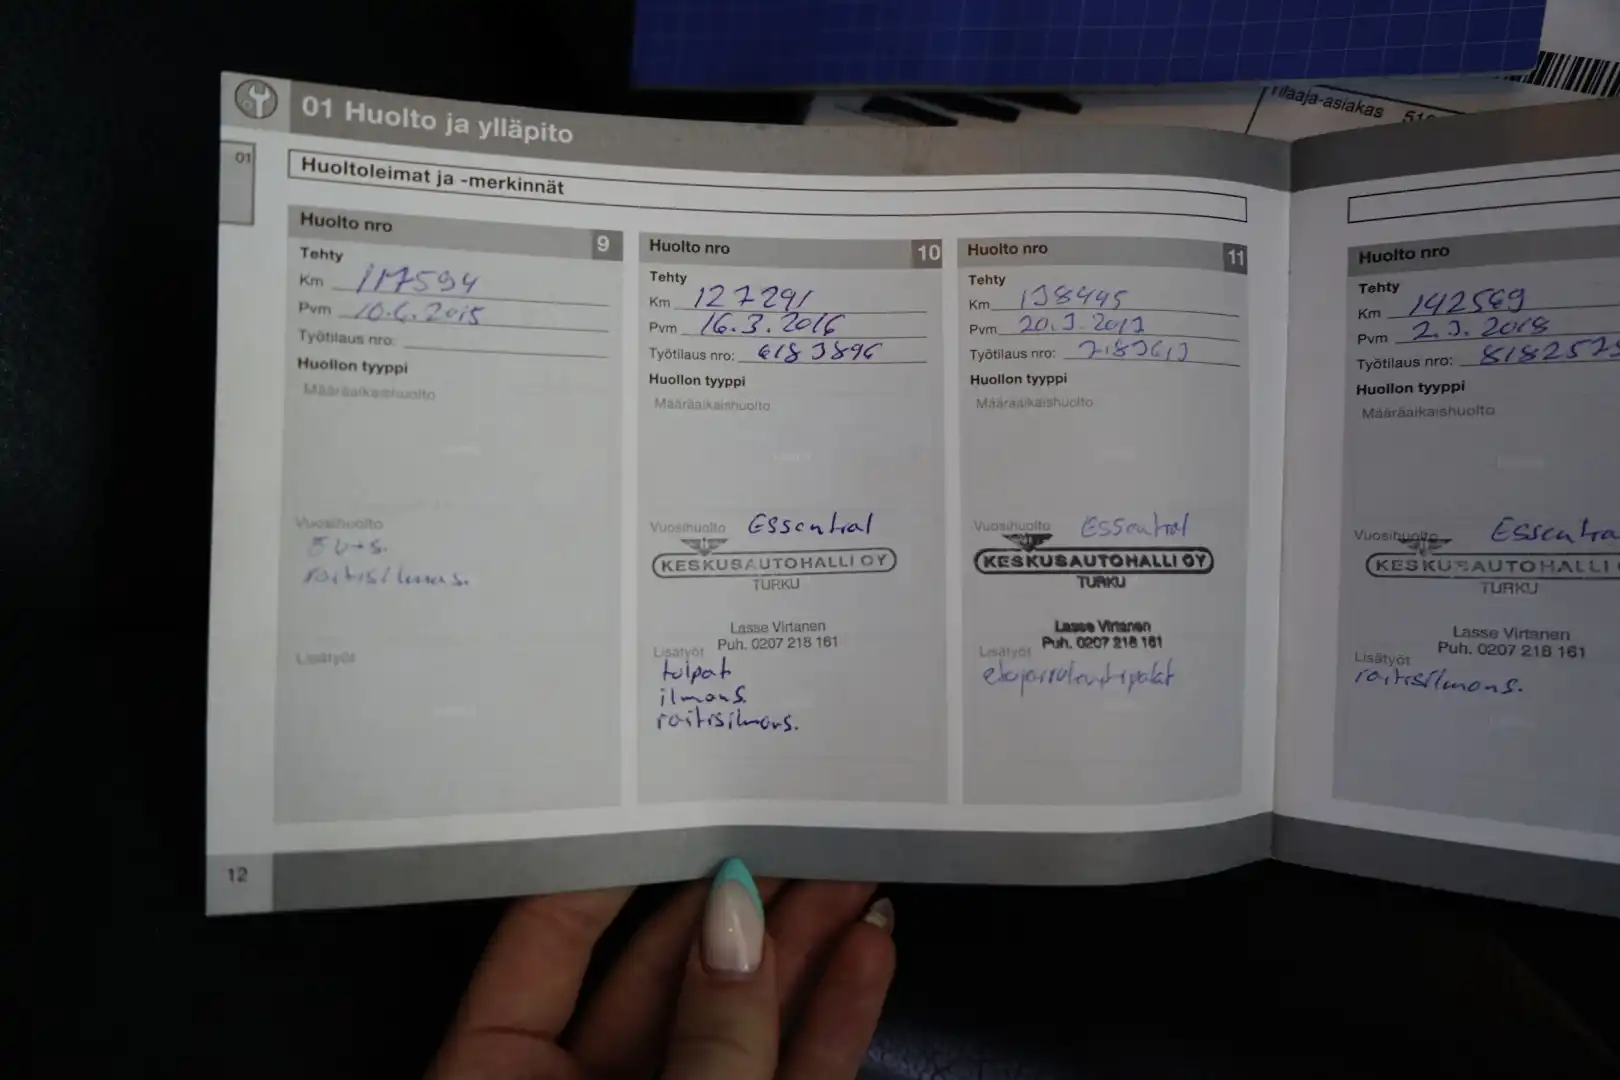 Tilaaja-asiakas
01 Huolto ja ylläpito
01
Huoltoleimat ja -merkinnät
Huolto nro 9
Tehty
Km 117594
Pvm 10.6.2015
Työtilaus nro:
Huollon tyyppi
Määräaikaishuolto
Vuosihuolto
raitisilmas.
Lisätyöt
Huolto nro 10
Tehty
Km 127291
Pvm 16.3.2016
Työtilaus nro: 6183896
Huollon tyyppi
Määräaikaishuolto
Vuosihuolto Essential
KESKUSAUTOHALLI OY
TURKU
Lasse Virtanen
Puh. 0207 218 161
Lisätyöt
tulpat
ilmans.
raitisilmans.
Huolto nro 11
Tehty
Km 138445
Pvm 20.3.2017
Työtilaus nro:
Huollon tyyppi
Määräaikaishuolto
Vuosihuolto Essential
KESKUSAUTOHALLI OY
TURKU
Lasse Virtanen
Puh. 0207 218 161
Lisätyöt
etujarrulautapalat
Huolto nro
Tehty
Km 142569
Pvm 2.3.2018
Työtilaus nro:
Huollon tyyppi
Määräaikaishuolto
Vuosihuolto Essentia
KESKUSAUTOHALLI
TURKU
Lasse Virtanen
Puh. 0207 218 161
Lisätyöt
raitisilmans.
12